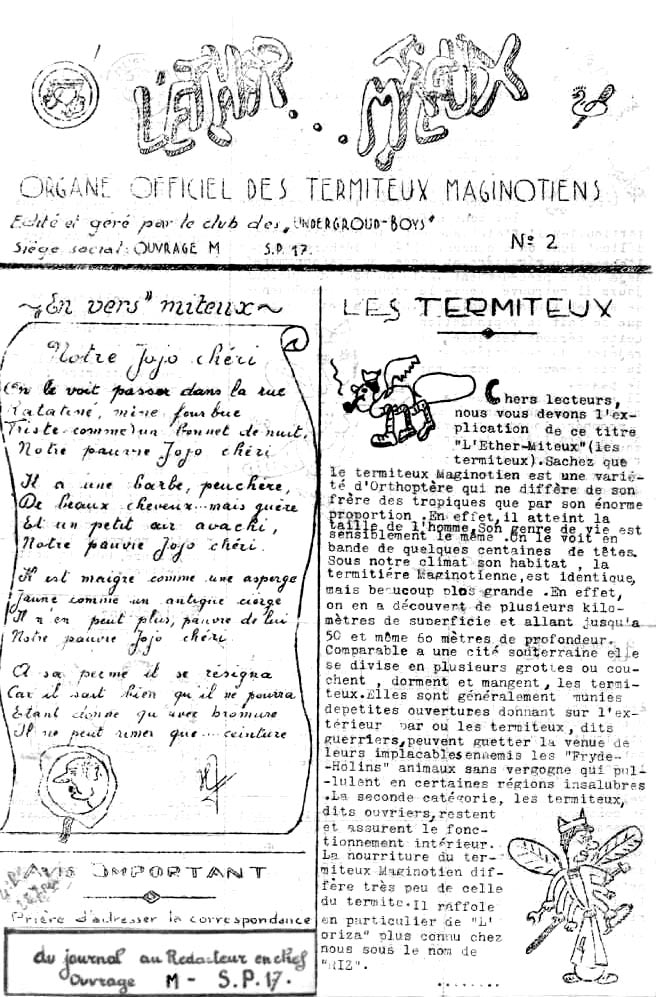 L'ETHER...MITEUX
ORGANE OFFICIEL DES TERMITEUX MAGINOTIENS
Edité et géré par le club des „UNDERGROUD-BOYS"
Siège social: OUVRAGE M S.P. 17.
N° 2
~„En vers" miteux~
Notre Jojo chéri
On le voit passer dans la rue
Ratatiné, mine fourbue
Triste comme un bonnet de nuit,
Notre pauvre Jojo chéri
Il a une barbe, peuchère,
De beaux cheveux...mais guère
Et un petit air avachi,
Notre pauvre Jojo chéri.
Il est maigre comme une asperge
Jaune comme un antique cierge
Il n'en peut plus, pauvre de lui
Notre pauvre Jojo chéri.
A sa perme il se résigna
Car il sait bien qu'il ne pourra
Etant donné qu'avec bromure
Il ne peut rimer que...ceinture
AVIS IMPORTANT
Prière d'adresser la correspondance
du journal au Redacteur en chef
Ouvrage M - S.P. 17.
LES TERMITEUX
Chers lecteurs,
nous vous devons l'ex-
plication de ce titre
"L'Ether-Miteux"(les
termiteux).Sachez que
le termiteux Maginotien est une varié-
té d'Orthoptère qui ne diffère de son
frère des tropiques que par son énorme
proportion .En effet,il atteint la
taille de l'homme.Son genre de vie est
sensiblement le même .On le voit en
bande de quelques centaines de têtes.
Sous notre climat son habitat , la
termitière Maginotienne,est identique,
mais beaucoup plos grande .En effet,
on en a découvert de plusieurs kilo-
mètres de superficie et allant jusqu'a
50 et même 60 mètres de profondeur.
Comparable a une cité souterraine elle
se divise en plusieurs grottes ou cou-
chent , dorment et mangent, les termi-
teux.Elles sont généralement munies
depetites ouvertures donnant sur l'ex-
térieur par ou les termiteux, dits
guerriers,peuvent guetter la venue de
leurs implacables ennemis les "Fryde-
-Holins" animaux sans vergogne qui pul-
-lulent en certaines régions insalubres
.La seconde catégorie, les termiteux,
dits ouvriers,restent
et assurent le fonc-
tionnement intérieur.
La nourriture du ter-
miteux Maginotien dif-
fère très peu de celle
du termite.Il raffole
en particulier de "L'
oriza" plus connu chez
nous sous le nom de
"RIZ".
........